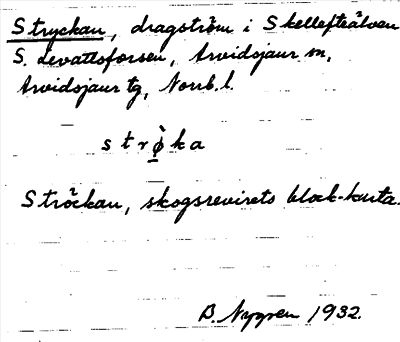 Stryckan, dragström i Skellefteälven
S. Levattsforsen, Arvidsjaur sn,
Arvidsjaur tg, Norrb. l.
strø̀ka
Ströckan, skogsrevirets block-karta.
B. Nygren 1932.